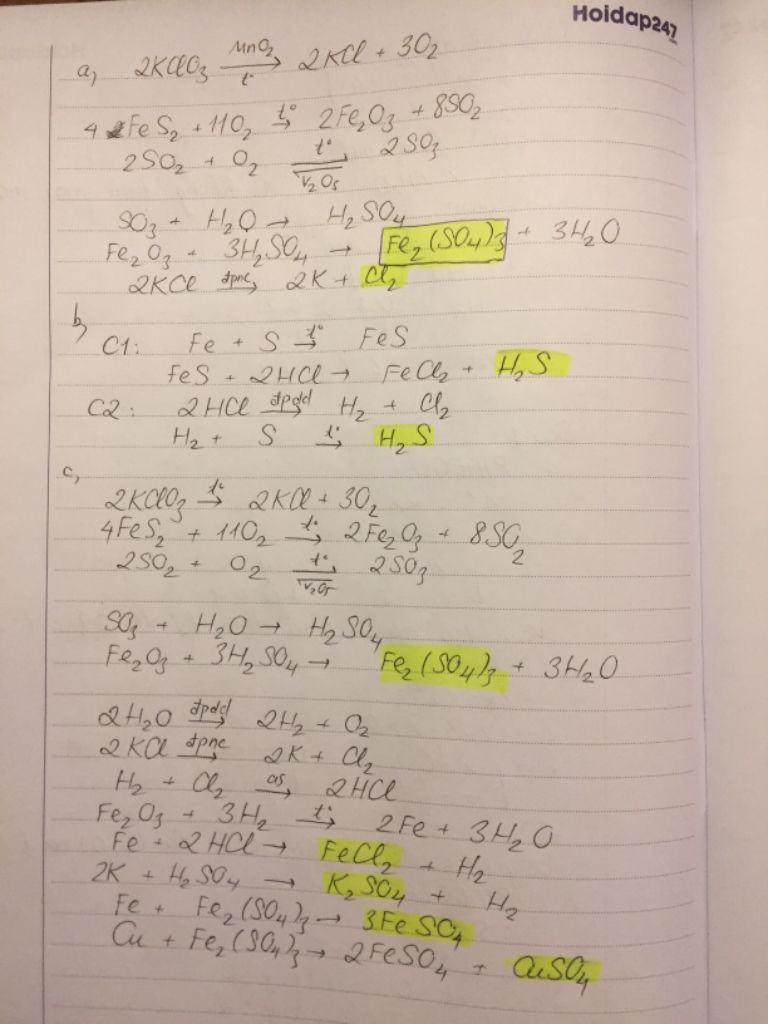 Hoidap247
a, 2KClO₃ MnO₂ → t° 2KCl + 3O₂
4 FeS₂ + 11O₂ t° → 2Fe₂O₃ + 8SO₂
2SO₂ + O₂ t° → V₂O₅ 2SO₃
SO₃ + H₂O → H₂SO₄
Fe₂O₃ + 3H₂SO₄ → Fe₂(SO₄)₃ + 3H₂O
2KCl đpnc → 2K + Cl₂
b,
C1: Fe + S t° → FeS
FeS + 2HCl → FeCl₂ + H₂S
C2: 2HCl đpdd → H₂ + Cl₂
H₂ + S t° → H₂S
c,
2KClO₃ t° → 2KCl + 3O₂
4FeS₂ + 11O₂ t° → 2Fe₂O₃ + 8SO₂
2SO₂ + O₂ t° → V₂O₅ 2SO₃
SO₃ + H₂O → H₂SO₄
Fe₂O₃ + 3H₂SO₄ → Fe₂(SO₄)₃ + 3H₂O
2H₂O đpdd → 2H₂ + O₂
2KCl đpnc → 2K + Cl₂
H₂ + Cl₂ as → 2HCl
Fe₂O₃ + 3H₂ t° → 2Fe + 3H₂O
Fe + 2HCl → FeCl₂ + H₂
2K + H₂SO₄ → K₂SO₄ + H₂
Fe + Fe₂(SO₄)₃ → 3FeSO₄
Cu + Fe₂(SO₄)₃ → 2FeSO₄ + CuSO₄